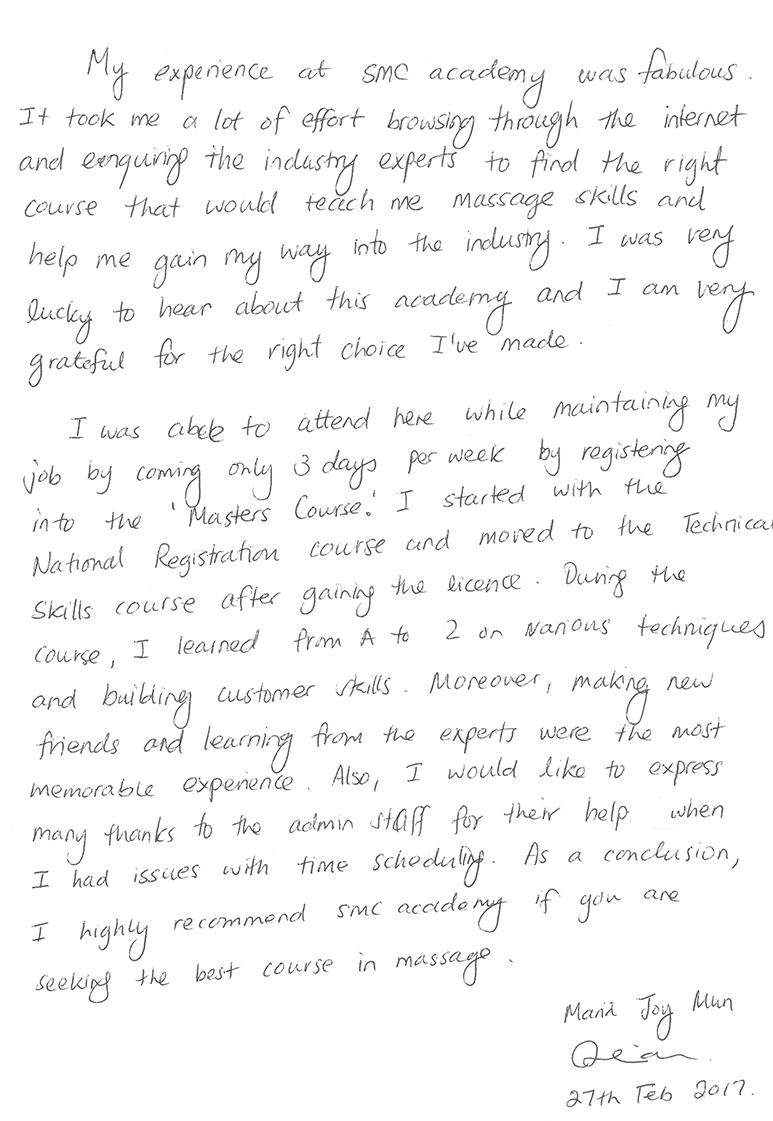 My experience at SMC academy was fabulous.
It took me a lot of effort browsing through the internet
and enquiring the industry experts to find the right
course that would teach me massage skills and
help me gain my way into the industry. I was very
lucky to hear about this academy and I am very
grateful for the right choice I've made.
I was able to attend here while maintaining my
job by coming only 3 days per week by registering
into the 'Masters Course.' I started with the
National Registration course and moved to the Technical
Skills course after gaining the licence. During the
course, I learned from A to Z on various techniques
and building customer skills. Moreover, making new
friends and learning from the experts were the most
memorable experience. Also, I would like to express
many thanks to the admin staff for their help when
I had issues with time scheduling. As a conclusion,
I highly recommend SMC academy if you are
seeking the best course in massage.
Joy Mun
27th Feb 2017.